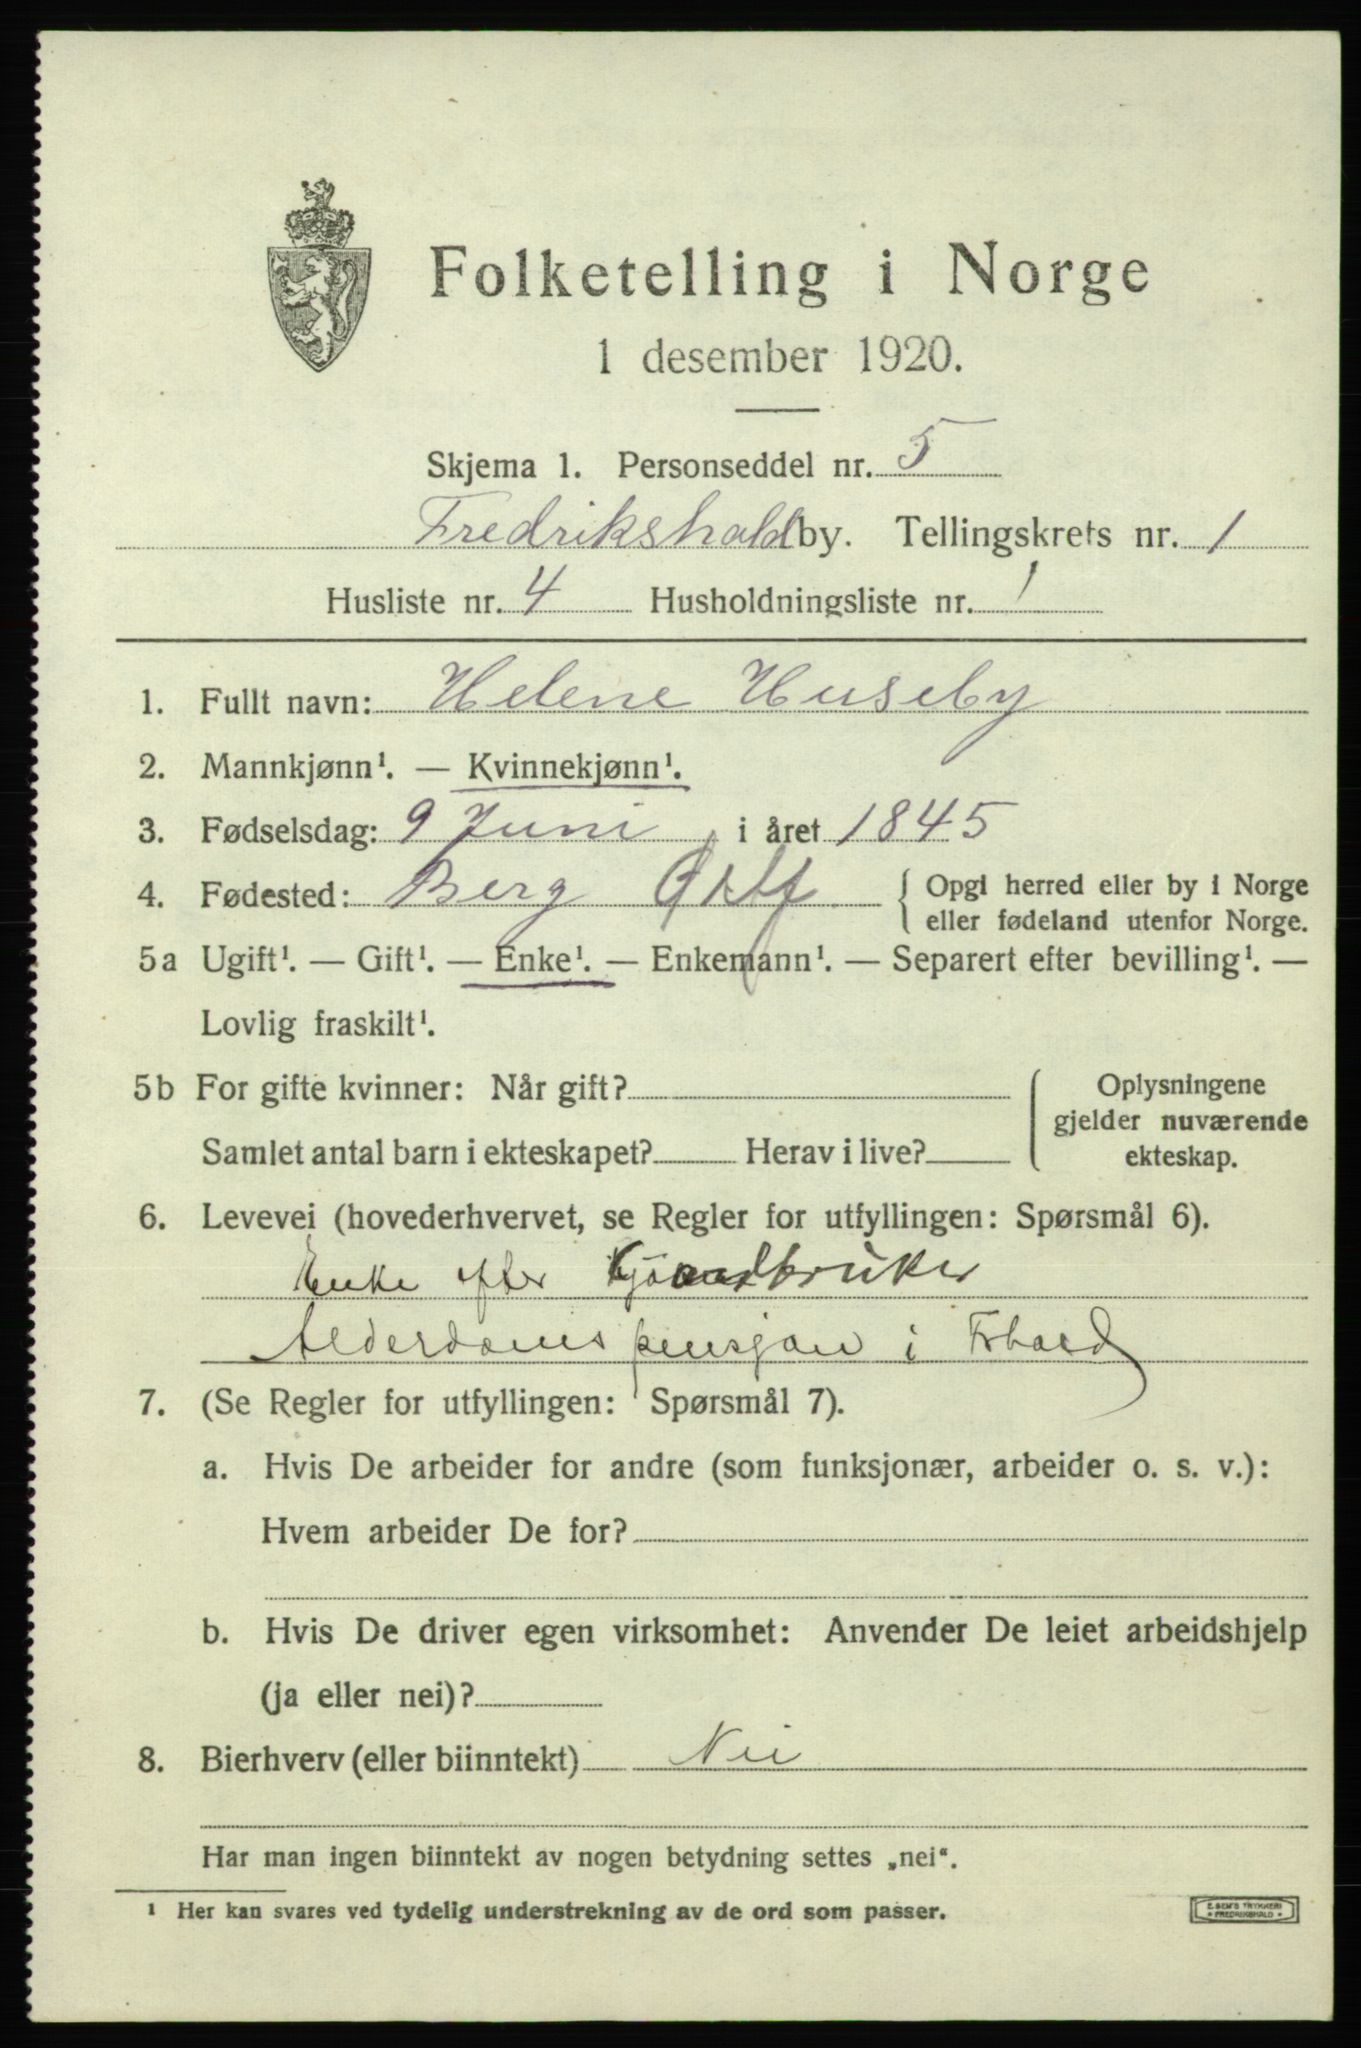 Folketelling i Norge
1 desember 1920.
Skjema 1. Personseddel nr. 5
Fredrikshald by. Tellingskrets nr. 1
Husliste nr. 4 Husholdningsliste nr. 1
1. Fullt navn: Helene Huseby
2. Mannkjønn¹. — Kvinnekjønn¹.
3. Fødselsdag: 9 Juni i året 1845
4. Fødested: Berg Østf { Opgi herred eller by i Norge
eller fødeland utenfor Norge.
5a Ugift¹. — Gift¹. — Enke¹. — Enkemann¹. — Separert efter bevilling¹. —
Lovlig fraskilt¹.
5b For gifte kvinner: Når gift? { Oplysningene
gjelder nuværende
Samlet antal barn i ekteskapet? Herav i live? ekteskap.
6. Levevei (hovederhvervet, se Regler for utfyllingen: Spørsmål 6).
Enke efter
Alderdomspensjon i Frhald
7. (Se Regler for utfyllingen: Spørsmål 7).
a. Hvis De arbeider for andre (som funksjonær, arbeider o. s. v.):
Hvem arbeider De for?
b. Hvis De driver egen virksomhet: Anvender De leiet arbeidshjelp
(ja eller nei)?
8. Bierhverv (eller biinntekt) Nei
Har man ingen biinntekt av nogen betydning settes „nei“.
¹ Her kan svares ved tydelig understrekning av de ord som passer.
E. SEM'S TRYKKERI
* FREDRIKSHALD *